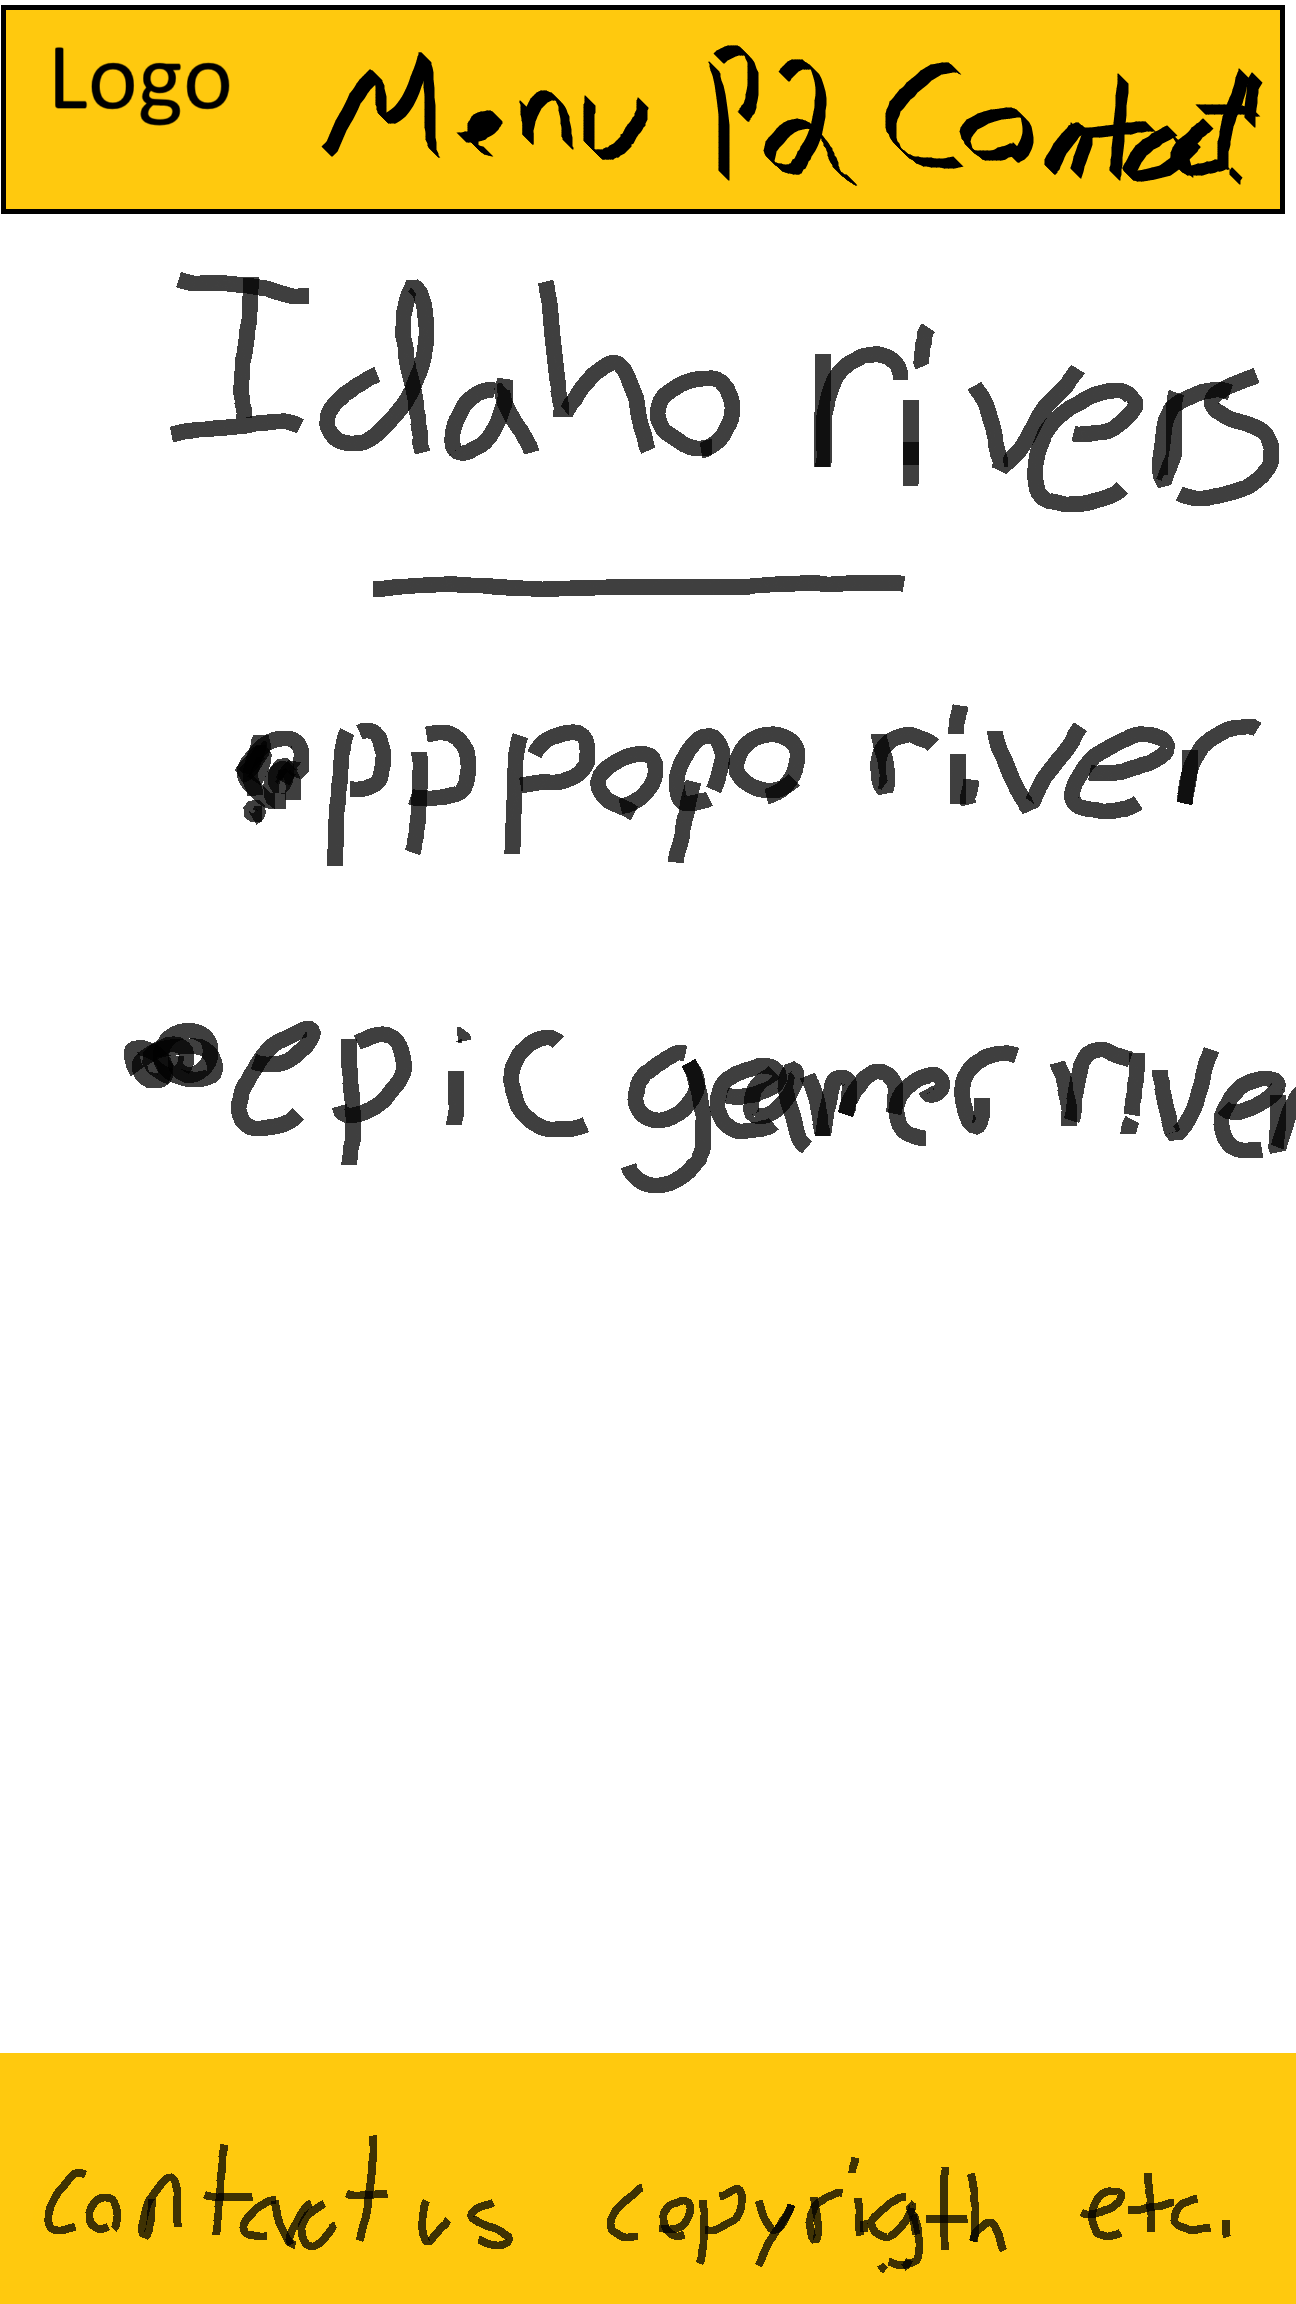 Logo Menu P2 Contact
Idaho rivers
pppopo river
epic gamer river
contact us copyrigth etc.